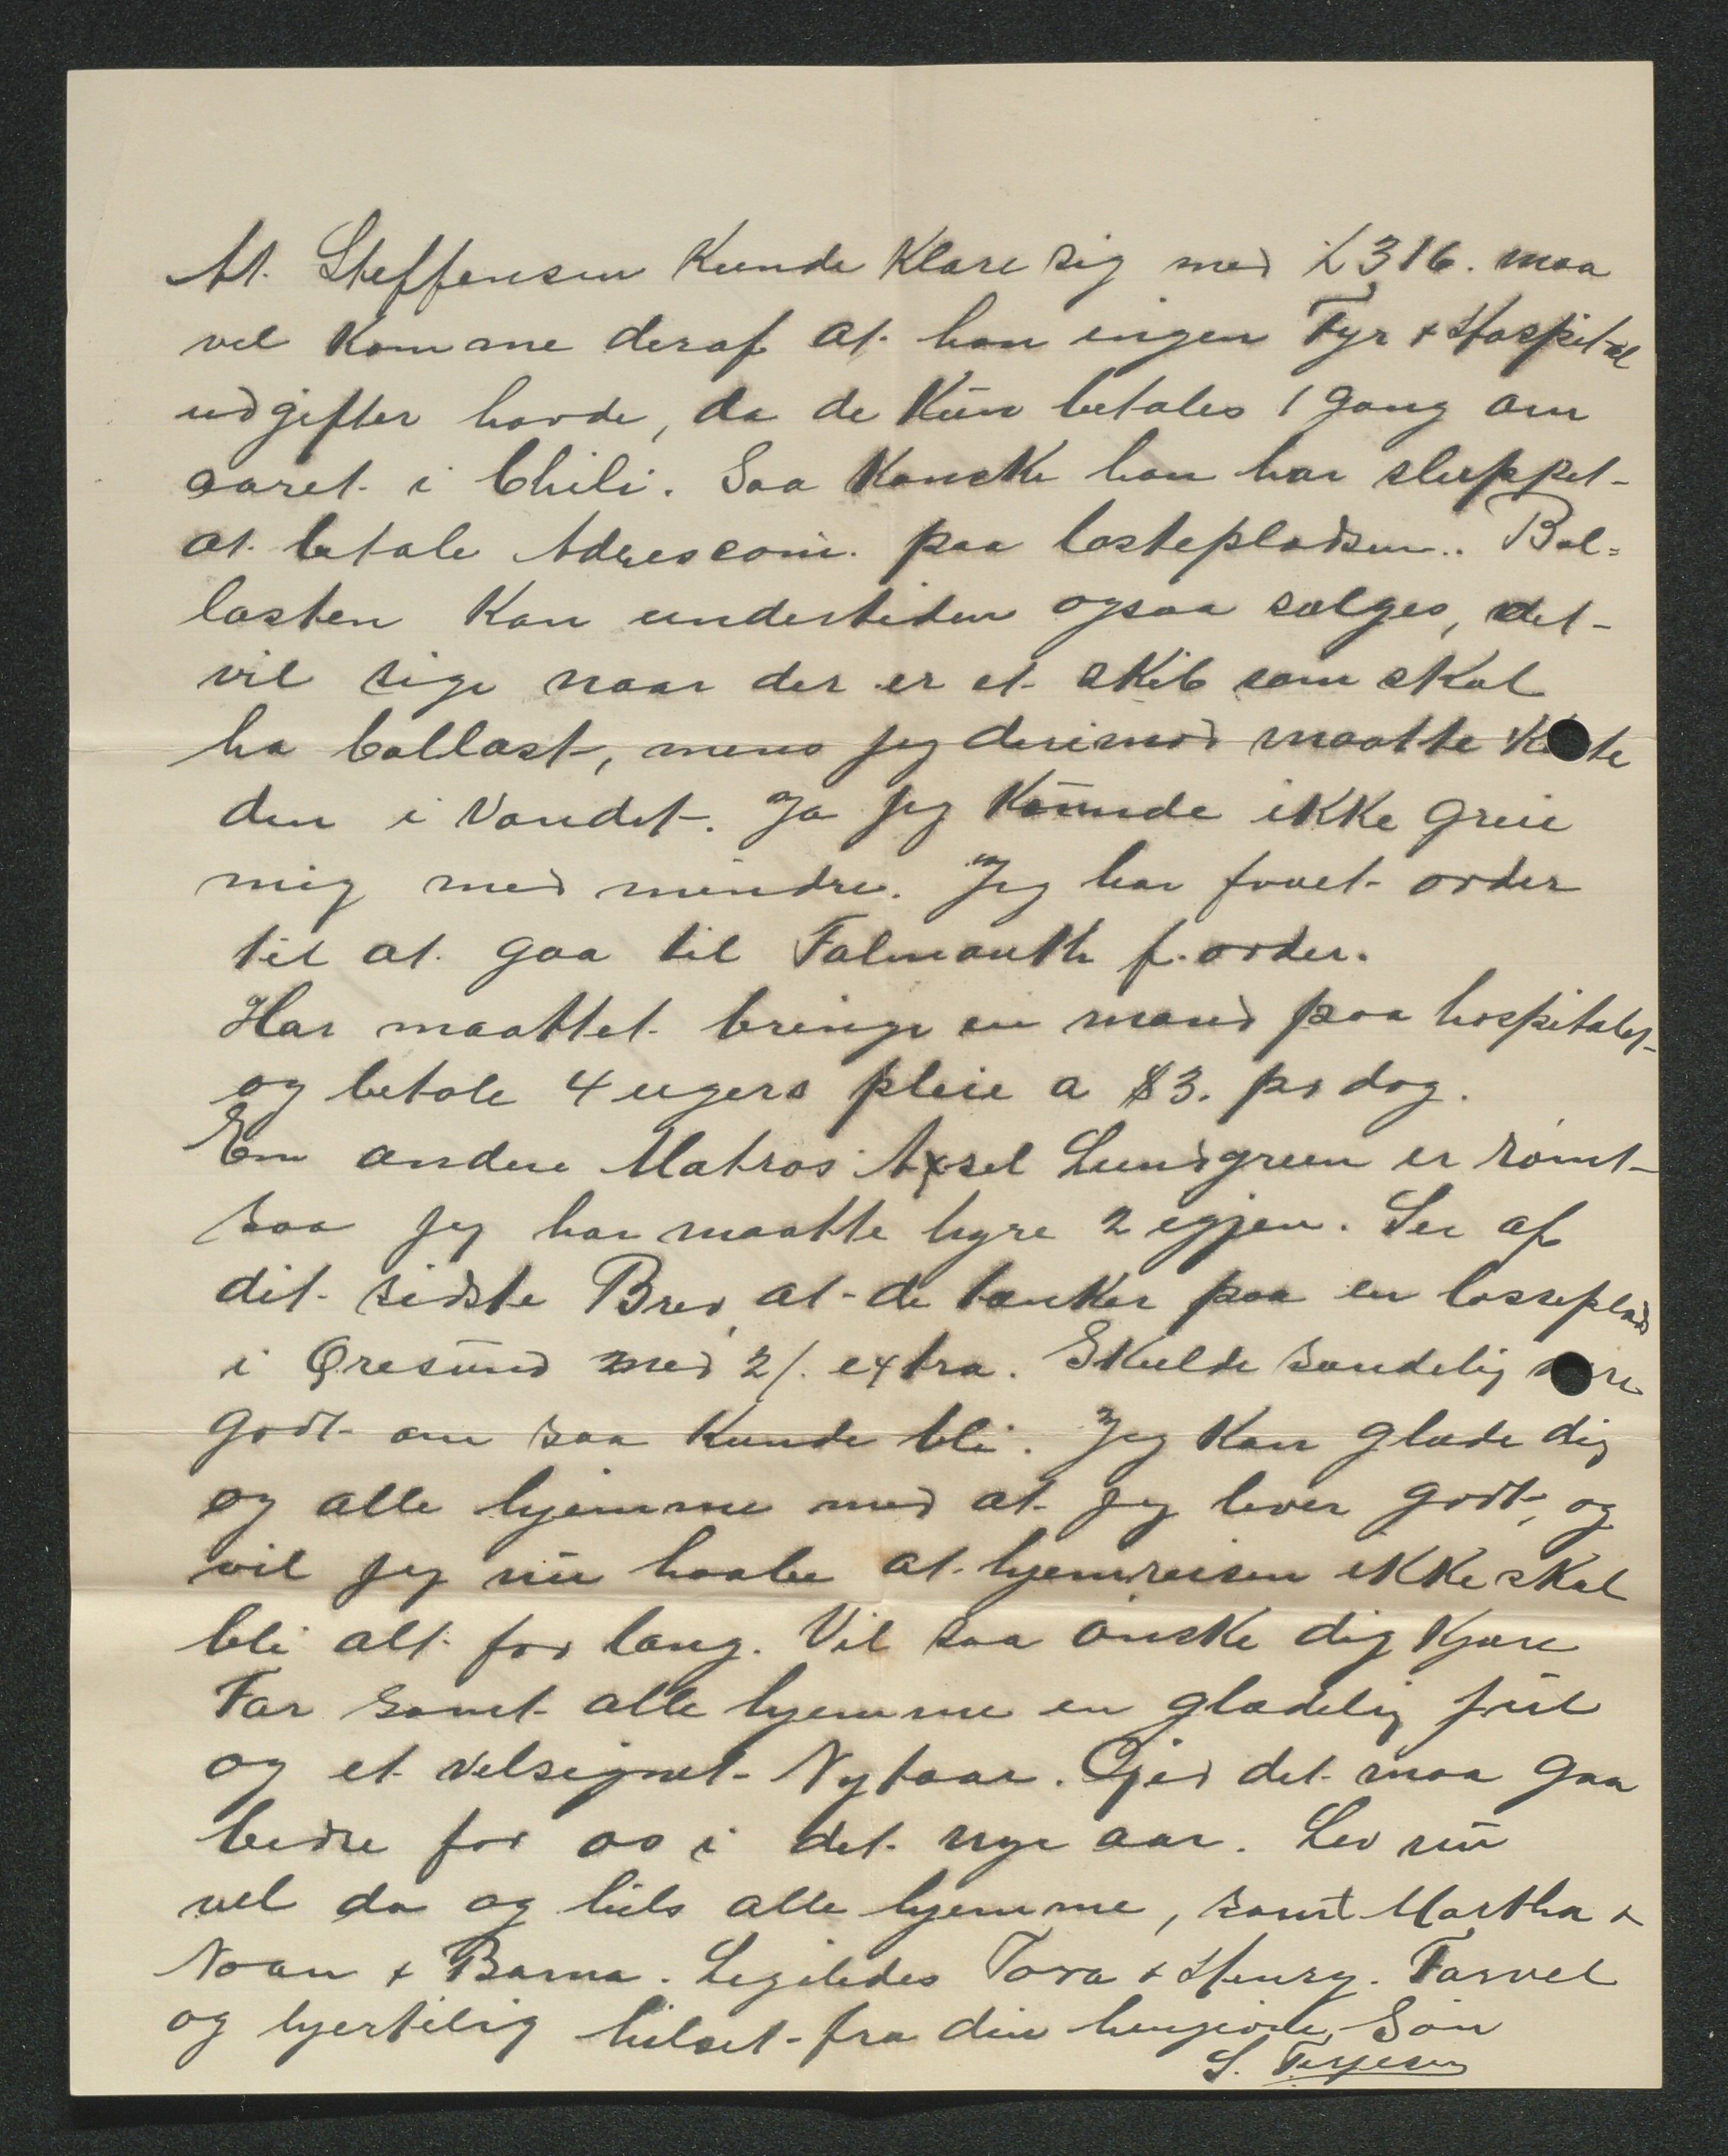 At Steffensen Kunde Klare sig med £316. maa
vel Komme deraf at han ingen Fyr & Hospital
udgifter havde, da de Kun betales 1 gang om
aaret i Chili. Saa Kanske han har sluppet
at betale Adrescom. paa lastepladsen. Bal=
lasten Kan undertiden ogsaa sælges, det
vil sige naar der er et skib som skal
ha ballast, mens jeg derimod maatte
den i Vandet. Ja jeg Kunde ikke greie
mig med mindre. Jeg har faaet order
til at gaa til Falmouth f. order.
Har maattet bringe en mand paa hospitalet
og betale 4 ugers pleie a $3. pr dag.
En anden Matros Axsel Lundgreen er rømt
saa jeg har maatte hyre 2 igjen. Ser af
dit sidste Brev, at de tænker paa en losseplads
i Øresund med 2/. extra. Skulde sandelig
godt om saa Kunde bli. Jeg Kan glæde dig
og alle hjemme med at jeg lever godt, og
vil jeg nu haabe at hjemreisen ikke skal
bli alt for lang. Vil saa ønske dig Kjære
Far samt alle hjemme en glædelig jul
og et velsignet Nytaar. Gjev det maa gaa
bedre for os i det nye aar. Lev nu
vel da og hils alle hjemme, samt Martha &
Noan & Barna. Ligeledes Tora & Henry. Farvel
og hjertelig hilset fra din hengivne Søn
S. Terjesen